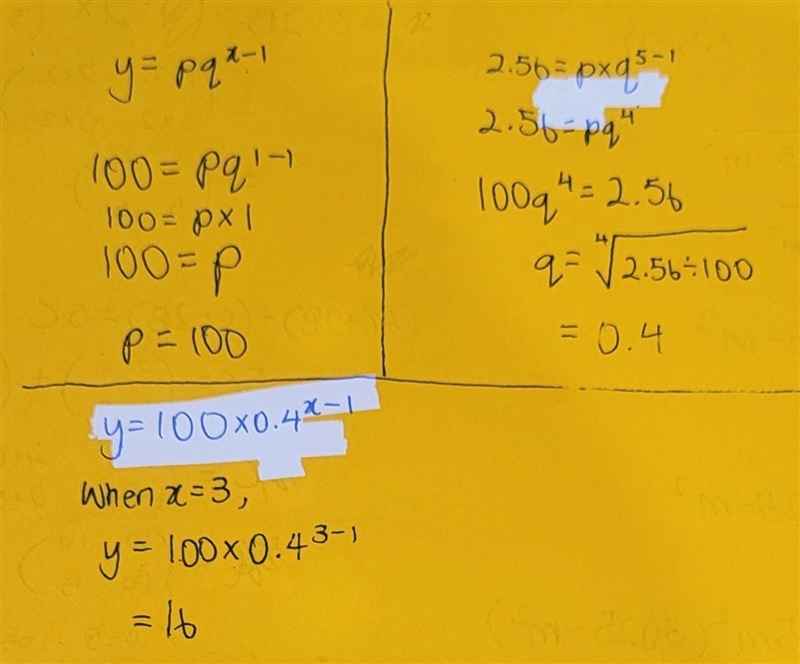 y = pq^{x-1}
100 = pq^{1-1}
100 = p × 1
100 = p
p = 100
2.56 = p×q^{5-1}
2.56 = pq^4
100q^4 = 2.56
q = ∜(2.56÷100)
= 0.4
y = 100 × 0.4^{x-1}
When x = 3,
y = 100 × 0.4^{3-1}
= 16